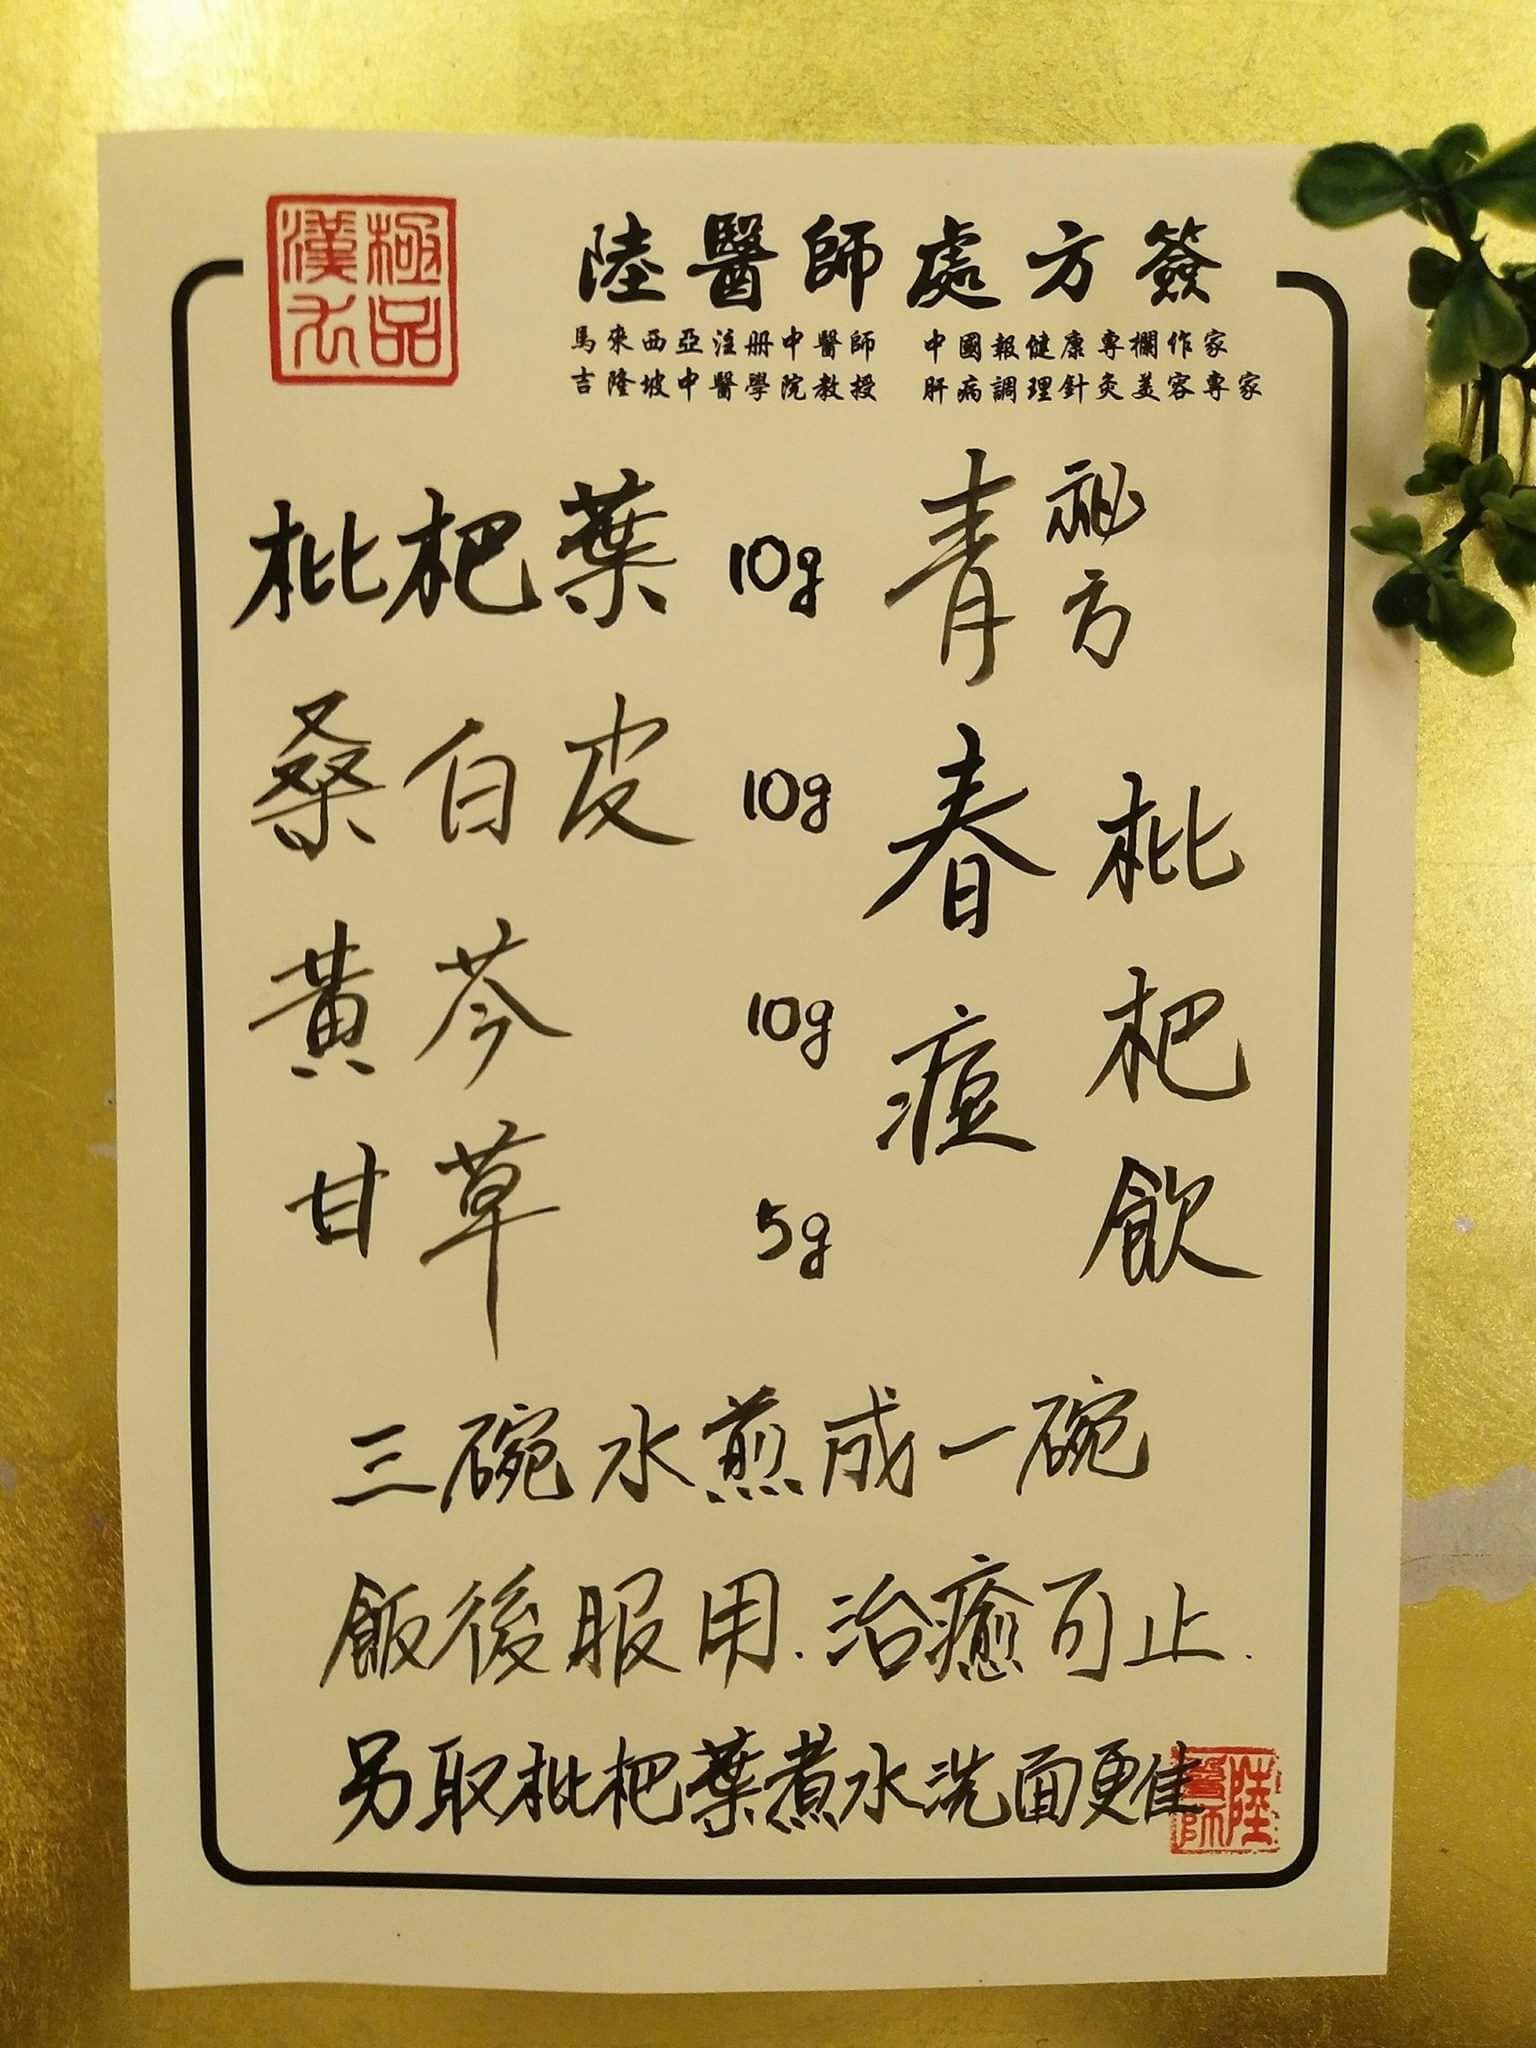 極品
漢方
陸醫師處方簽
馬來西亞注册中醫師 中國報健康專欄作家
吉隆坡中醫學院教授 肝病調理針灸美容專家
祕方
青春痘
枇杷飲
枇杷葉 10g
桑白皮 10g
黃芩 10g
甘草 5g
三碗水煎成一碗
飯後服用.治癒可止.
另取枇杷葉煮水洗面更佳
陸醫師